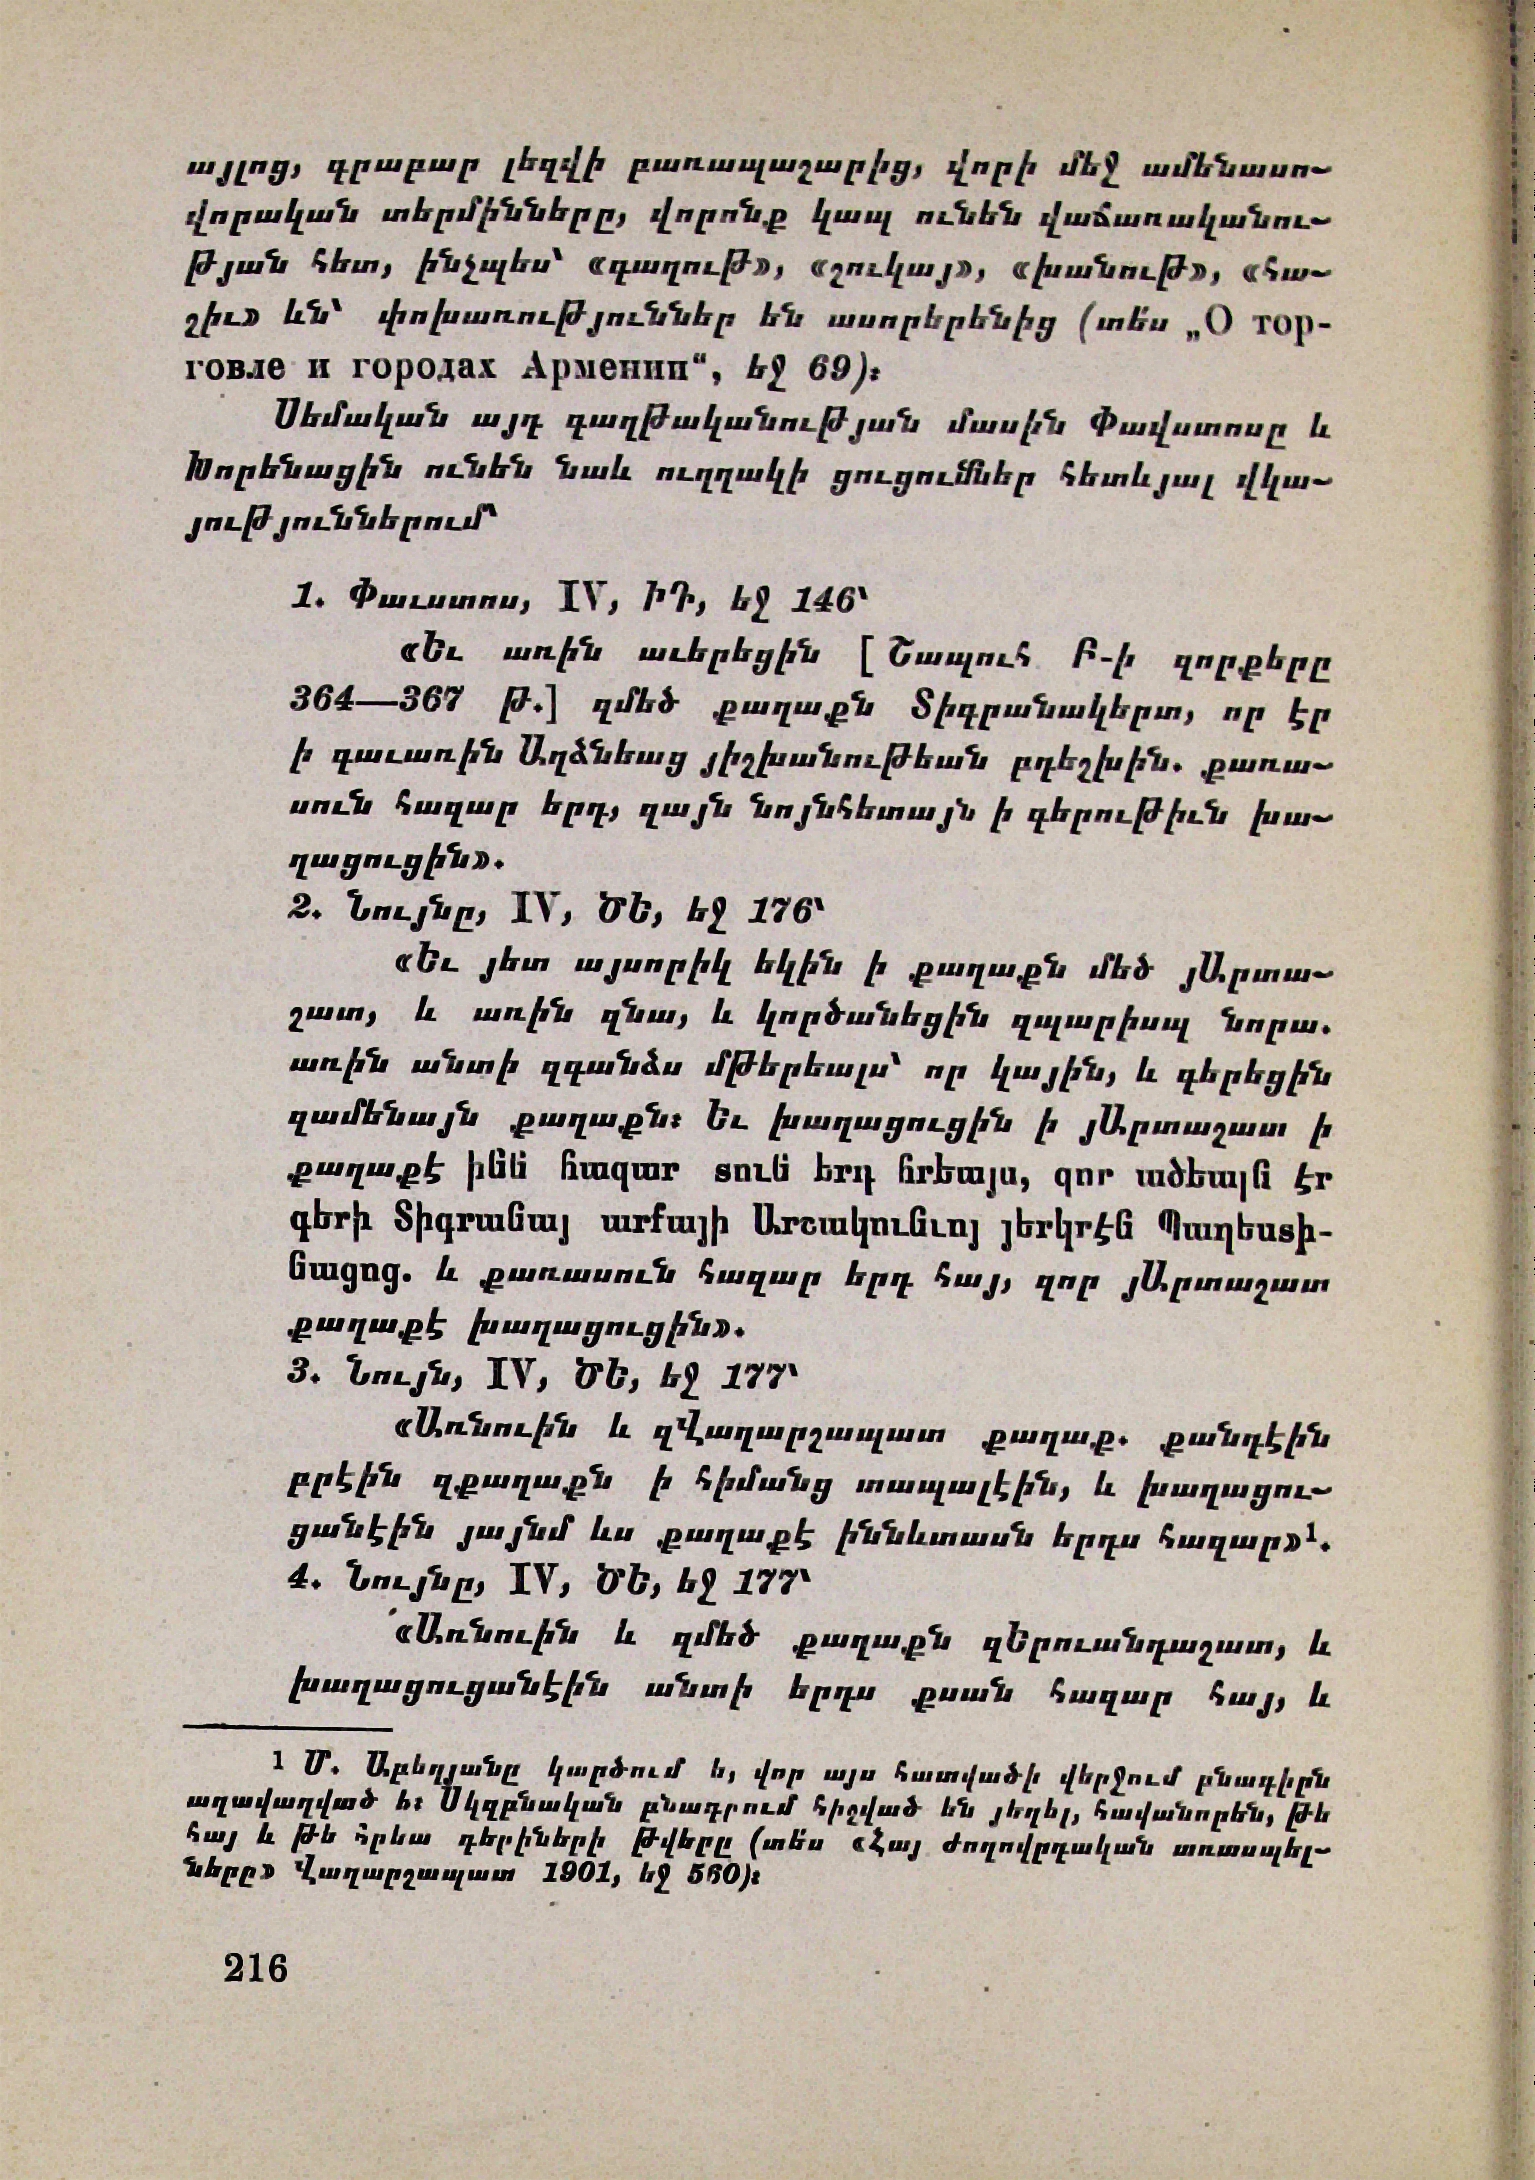 այլոց, գրաբար լեզվի բառապաշարից, վորի մեջ ամենասո-
վորական տերմինները, վորոնք կապ ունեն վաճառականու-
թյան հետ, ինչպես՝ «գաղութ», «շուկայ», «խանութ», «հա-
շիւ» ևն՝ փոխառություններ են ասորերենից (տե՛ս „О тор-
говле и городах Армении“, եջ 69)։
Սեմական այդ գաղթականության մասին Փավստոսը և
Խորենացին ունեն նաև ուղղակի ցուցումներ հետևյալ վկա-
յություններում՝
1. Փաւստոս, IV, ԻԴ, եջ 146՝
«Եւ առին աւերեցին [Շապուհ Բ-ի զորքերը
364—367 թ.] զմեծ քաղաքն Տիգրանակերտ, որ էր
ի գաւառին Աղձնեաց յիշխանութեան բդեշխին. քառա-
սուն հազար երդ, զայն նոյնհետայն ի գերութիւն խա-
ղացուցին».
2. Նույնը, IV, ԾԵ, եջ 176՝
«Եւ յետ այսորիկ եկին ի քաղաքն մեծ յԱրտա-
շատ, և առին զնա, և կործանեցին զպարիսպ նորա.
առին անտի զգանձս մթերեալս՝ որ կային, և գերեցին
զամենայն քաղաքն։ Եւ խաղացուցին ի յԱրտաշատ ի
քաղաքէ ինն հազար տուն երդ հրեայս, զոր ածեալն էր
գերի Տիգրանայ արքայի Արշակունւոյ յերկրէն Պաղեստի-
նացոց. և քառասուն հազար երդ հայ, զոր յԱրտաշատ
քաղաքէ խաղացուցին».
3. Նույն, IV, ԾԵ, եջ 177՝
«Առնուին և զՎաղարշապատ քաղաք. քանդէին
բրէին զքաղաքն ի հիմանց տապալէին, և խաղացու-
ցանէին յայնմ ևս քաղաքէ իննևտասն երդս հազար»¹.
4. Նույնը, IV, ԾԵ, եջ 177՝
«Առնուին և զմեծ քաղաքն զԵրուանդաշատ, և
խաղացուցանէին անտի երդս քսան հազար հայ, և
1 Մ. Աբեղյանը կարծում ե, վոր այս հատվածի վերջում բնագիրն
աղավաղված ե։ Սկզբնական բնագրում հիշված են յեղել, հավանորեն, թե
հայ և թե հրեա գերիների թվերը (տե՛ս «Հայ ժողովրդական առասպել-
ները» Վաղարշապատ 1901, եջ 560)։
216